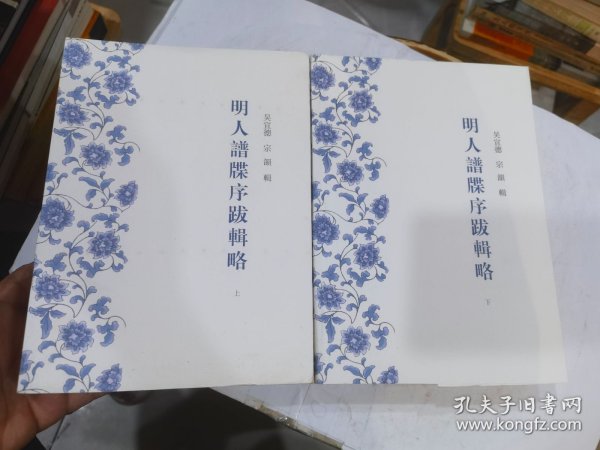 吴宣德 宗韻 輯
明人譜牒序跋輯略
上
吴宣德 宗韻 輯
明人譜牒序跋輯略
下
孔夫子旧书网
www.kongfz.com